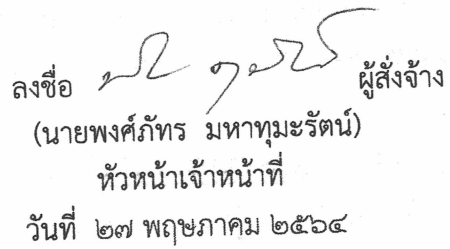 ลงชื่อ ผู้สั่งจ้าง
(นายพงศ์ภัทร มหาทุมะรัตน์)
หัวหน้าเจ้าหน้าที่
วันที่ ๒๗ พฤษภาคม ๒๕๖๔